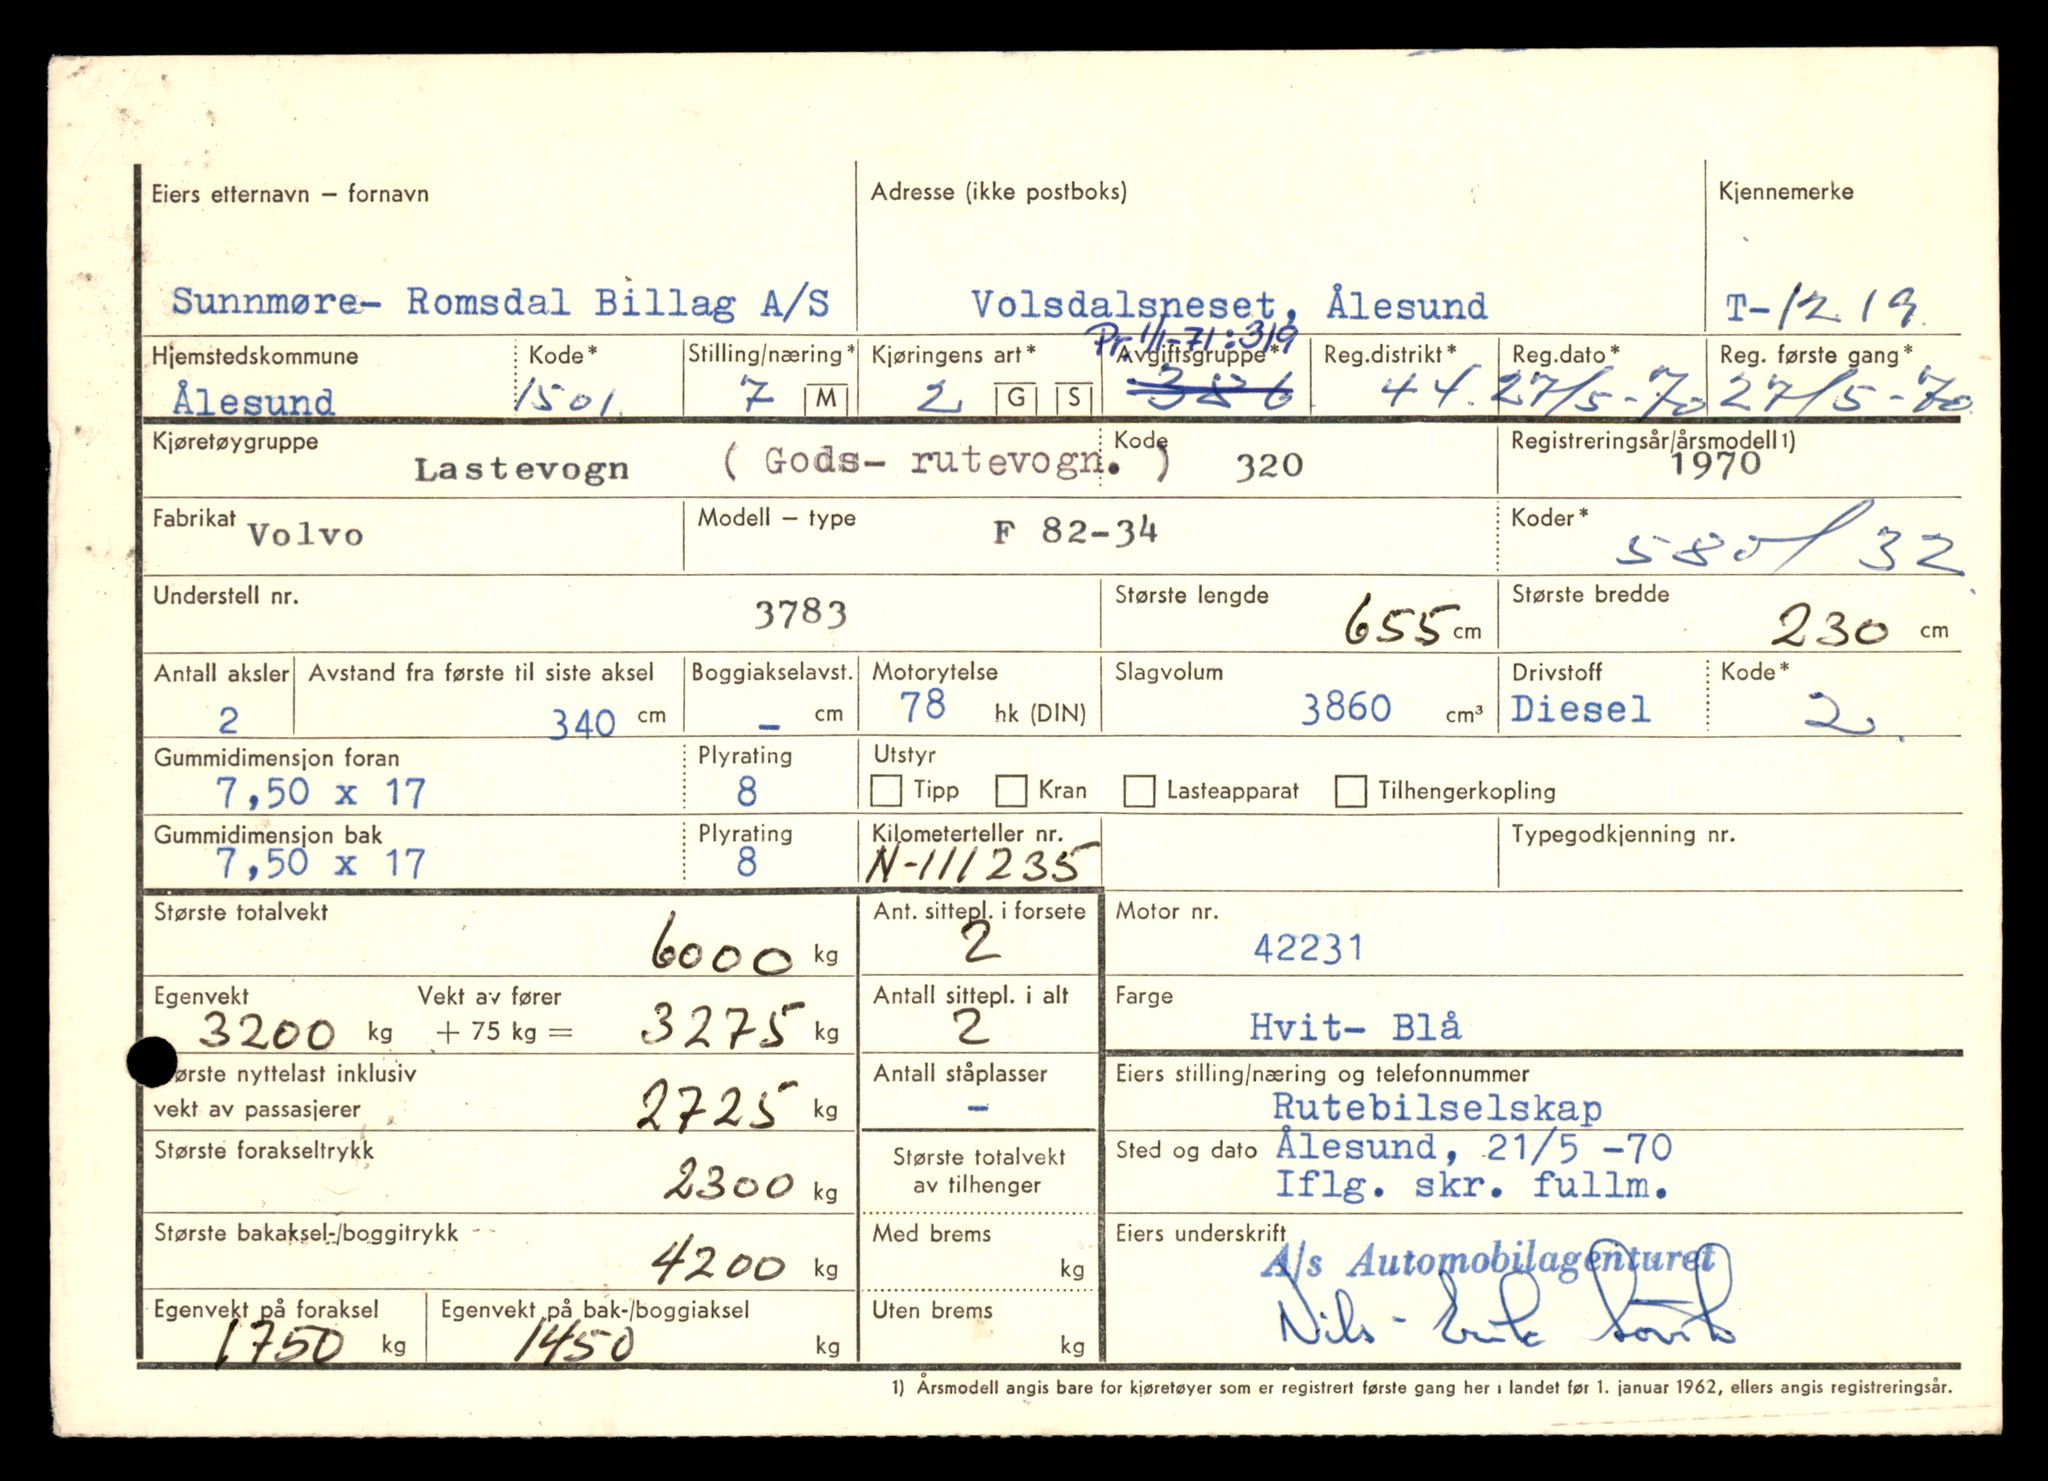 Eiers etternavn – fornavn Adresse (ikke postboks) Kjennemerke
Sunnmøre- Romsdal Billag A/S Volsdalsneset, Ålesund T-1219
Pr. 1/1-71: 319
Hjemstedskommune Kode* Stilling/næring* Kjøringens art* Avgiftsgruppe* Reg.distrikt* Reg.dato* Reg. første gang*
Ålesund 1501 7 M 2 G S 386 44. 27/5-70 27/5-70
Kjøretøygruppe Kode Registreringsår/årsmodell 1)
Lastevogn ( Gods- rutevogn. ) 320 1970
Fabrikat Modell – type Koder*
Volvo F 82-34 580/32
Understell nr. Største lengde Største bredde
3783 655 cm 230 cm
Antall aksler Avstand fra første til siste aksel Boggiakselavst. Motorytelse Slagvolum Drivstoff Kode*
2 340 cm – cm 78 hk (DIN) 3860 cm³ Diesel 2
Gummidimensjon foran Plyrating Utstyr
7,50 x 17 8 Tipp Kran Lasteapparat Tilhengerkopling
Gummidimensjon bak Plyrating Kilometerteller nr. Typegodkjenning nr.
7,50 x 17 8 N-111235
Største totalvekt Ant. sittepl. i forsete Motor nr.
6000 kg 2 42231
Egenvekt Vekt av fører Antall sittepl. i alt Farge
3200 kg + 75 kg = 3275 kg 2 Hvit- Blå
ørste nyttelast inklusiv Antall ståplasser Eiers stilling/næring og telefonnummer
vekt av passasjerer 2725 kg – Rutebilselskap
Største forakseltrykk Største totalvekt Sted og dato Ålesund, 21/5 -70
2300 kg av tilhenger Iflg. skr. fullm.
Største bakaksel-/boggitrykk Med brems Eiers underskrift
4200 kg kg A/s Automobilagenturet
Egenvekt på foraksel Egenvekt på bak-/boggiaksel Uten brems Nils-Erik
1750 kg 1450 kg kg
1) Årsmodell angis bare for kjøretøyer som er registrert første gang her i landet før 1. januar 1962, ellers angis registreringsår.